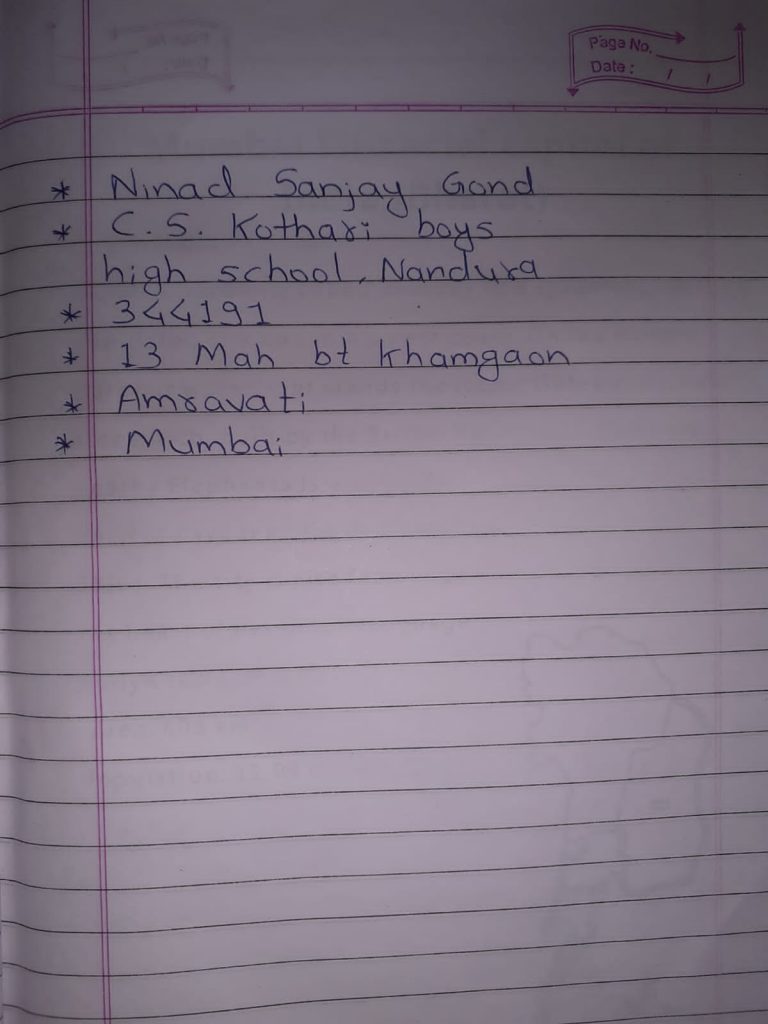 Page No.
Date : / /
* Ninad Sanjay Gond
* C. S. Kothari boys
high school, Nandura
* 344191
* 13 Mah bt Khamgaon
* Amravati
* Mumbai